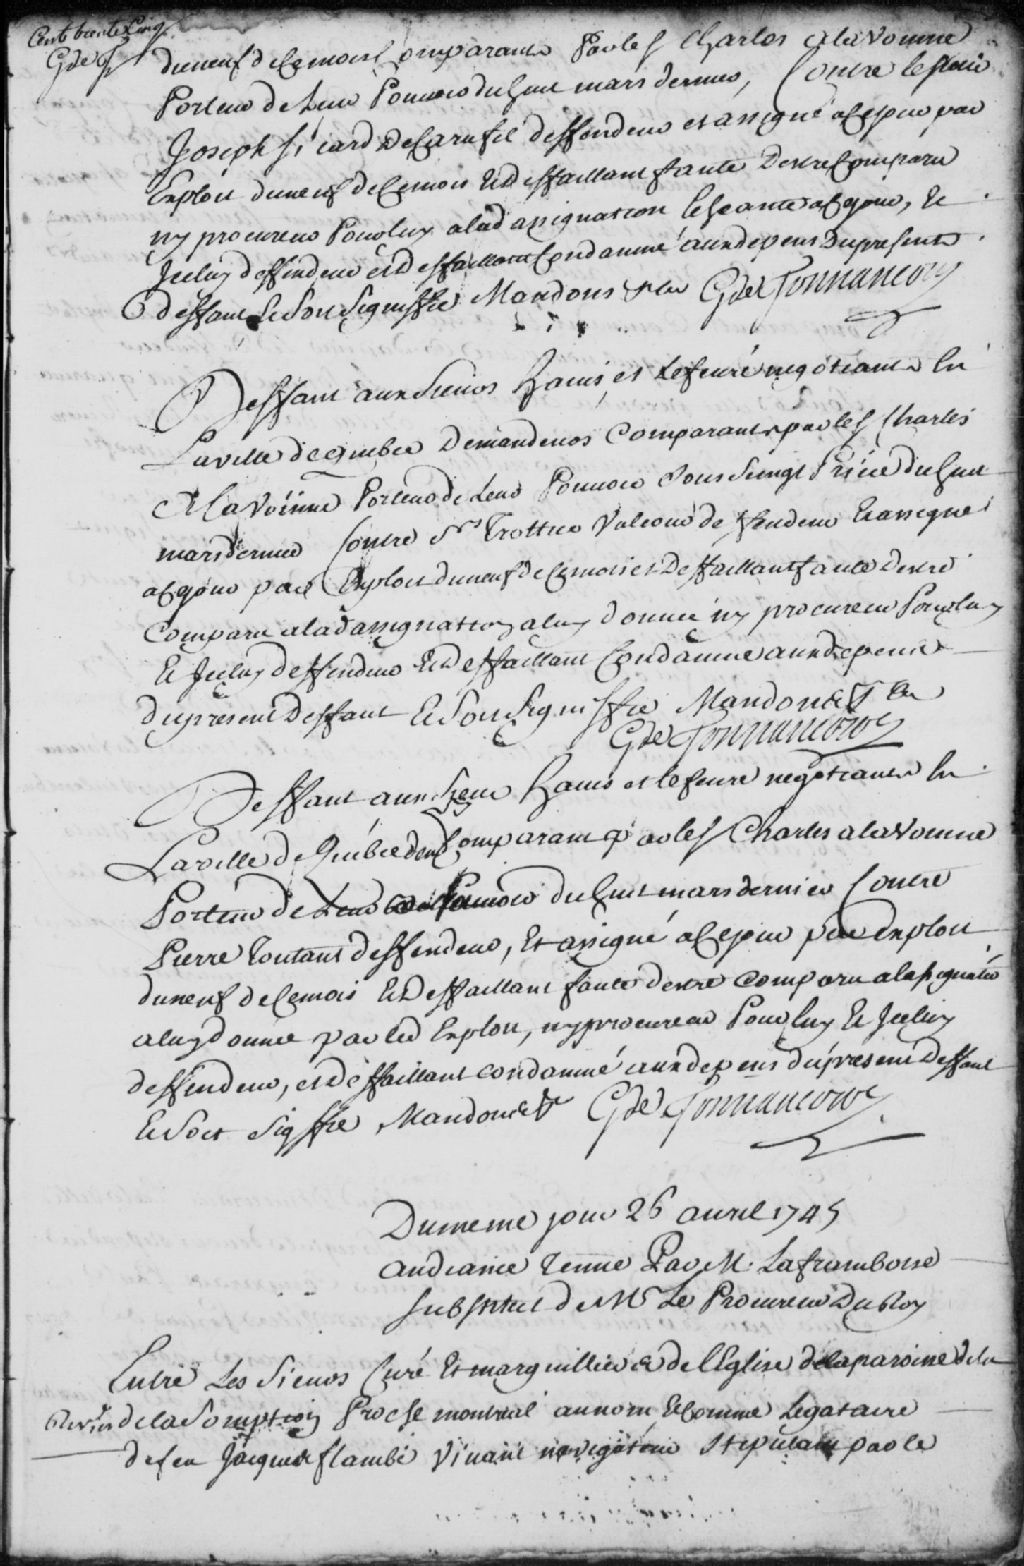 Cent trente Cinq
G de T
du neuf de Ce mois Comparants Par le S.r Charles alavoinne
Porteur de Leur Pouvoir du huit mars dernier, Contre le Sieur
Joseph Sicard De Carufel deffendeur et assigné a Ce jour par
Exploit du neuf de Ce mois Et Deffaillant faute Destre Comparu
ny procureur Pour luy a lad assignation Echeante a Ce jour, Et
Iceluy deffendeur et deffaillant Condamné aux depens Du present
deffaut Et Soit Signiffié Mandons &a G de Tonnancour
Deffaut aux Sieurs havis et Lefevre negotiants En
La ville de quebec Demandeurs Comparants par le S.r Charles
A La Voinne Porteur de Leur Pouvoir Sous Seing Privé du huit
mars dernier Contre S.r Trottier Valcour deffendeur Et assigné
a Ce jour par Exploit du neuf de Ce mois et Deffaillant faute Destre
Comparu a lad assignation a luy donnée ny procureur Pour luy
Et Iceluy deffendeur Et Deffaillant Condamné aux depens
du present Deffaut Et Soit Signiffié Mandons &a
G de Tonnancour
Deffaut aux Sieurs havis et lefevre negotiants En
La ville de Quebec dem Comparants par le S.r Charles alavoinne
Porteur de Leur Pouvoir du huit mars dernier Contre
Pierre Toutant deffendeur, Et assigné a Ce jour par Exploit
du neuf de Ce mois Et Deffaillant faute destre Comparu a lassignation
a luy donnée par led Exploit, ny procureur Pour luy Et Iceluy
deffendeur, et deffaillant condamné aux depens du present Deffaut
Et Soit Sigffié Mandons &a G de Tonnancour
Du meme jour 26 avril 1745
audiance Tenue Par M. Laframboise
Substitut de Mr Le Procureur Du Roy
Entre Les Sieurs Curé Et marguilliers de l'Eglise de la paroisse de la
de la Somption Proche montreal au nom Et Comme Legataire
de feu Jacques flambé Vivant navigateur Stipulant par le